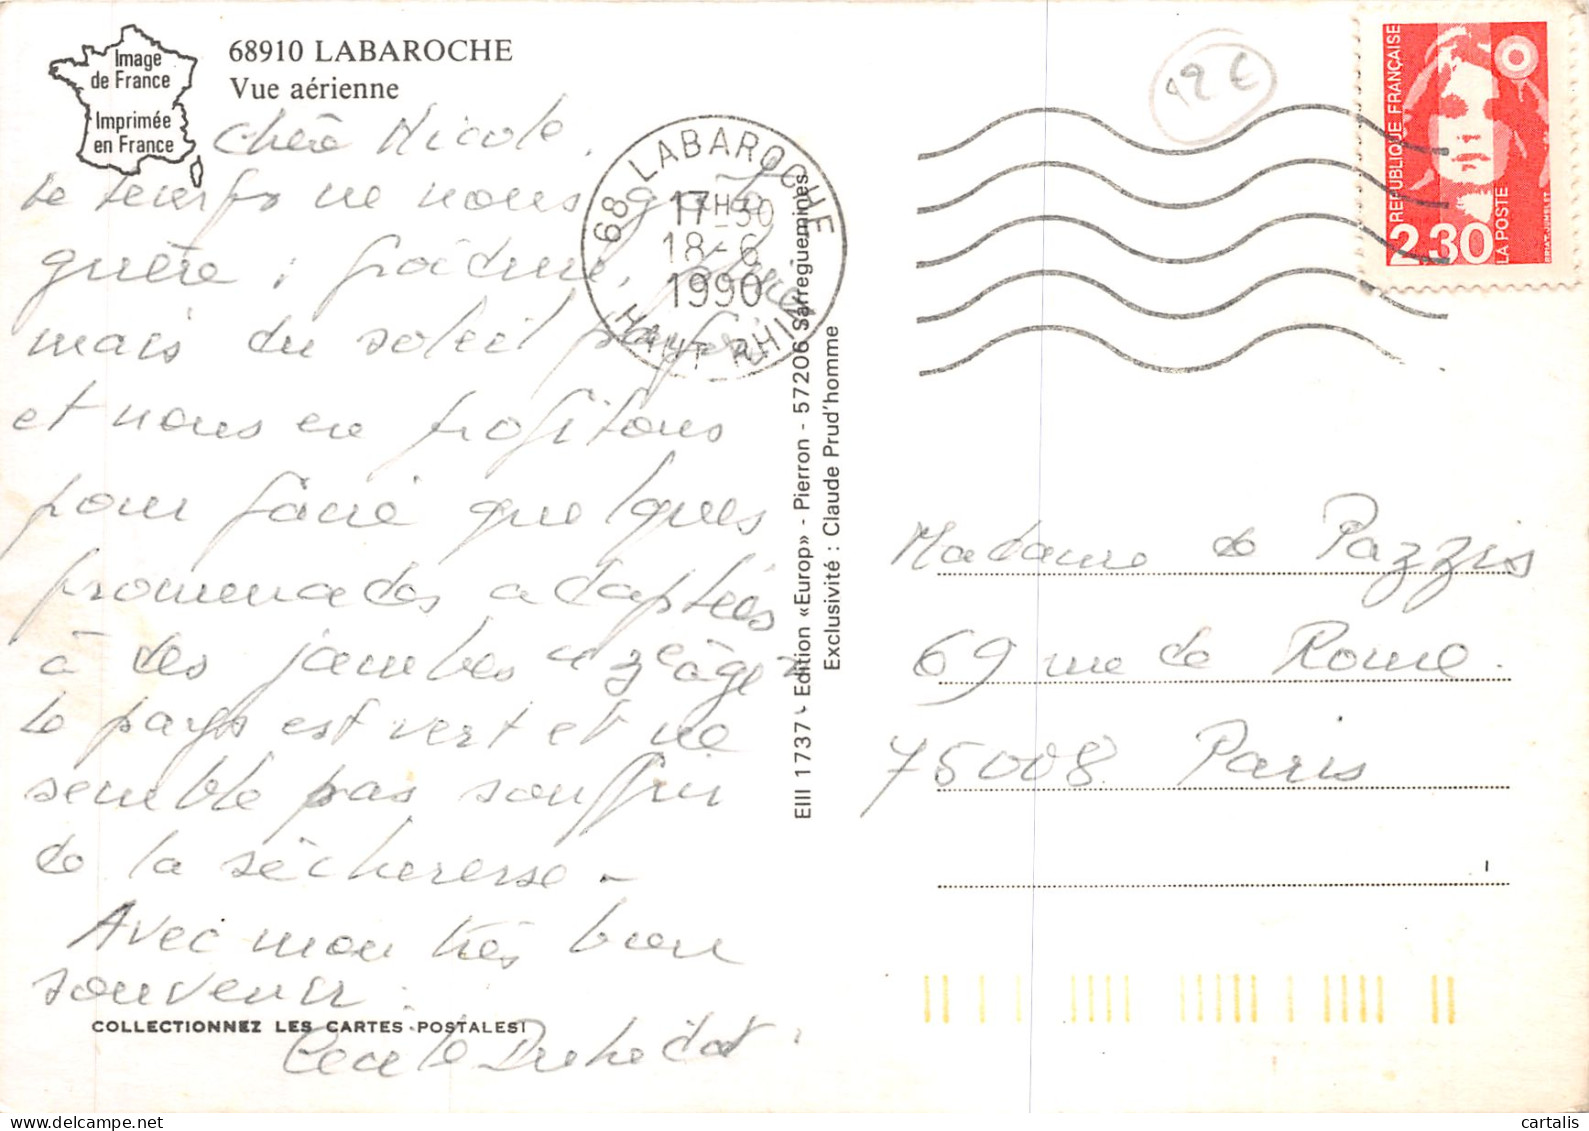 Image
de France
Imprimée
en France
68910 LABAROCHE
Vue aérienne
Chère Nicole,
Le temps ne nous gâte
guère ; froidure, pluie
mais du soleil parfois
et nous en profitons
pour faire quelques
promenades adaptées
à des jambes "3e âge"
Le pays est vert et ne
semble pas souffrir
de la sécheresse -
Avec mon très bon
souvenir.
Cécile
COLLECTIONNEZ LES CARTES POSTALES!
68 LABAROCHE
17H30
18-6
1990
HAUT RHIN
EIII 1737 - Edition «Europ» - Pierron - 57206 Sarreguemines
Exclusivité : Claude Prud'homme
12 €
REPUBLIQUE FRANÇAISE
2,30
LA POSTE
BRIAT-JUMELET
Madame de Pazzis
69 rue de Rome.
75008 Paris
cartalis